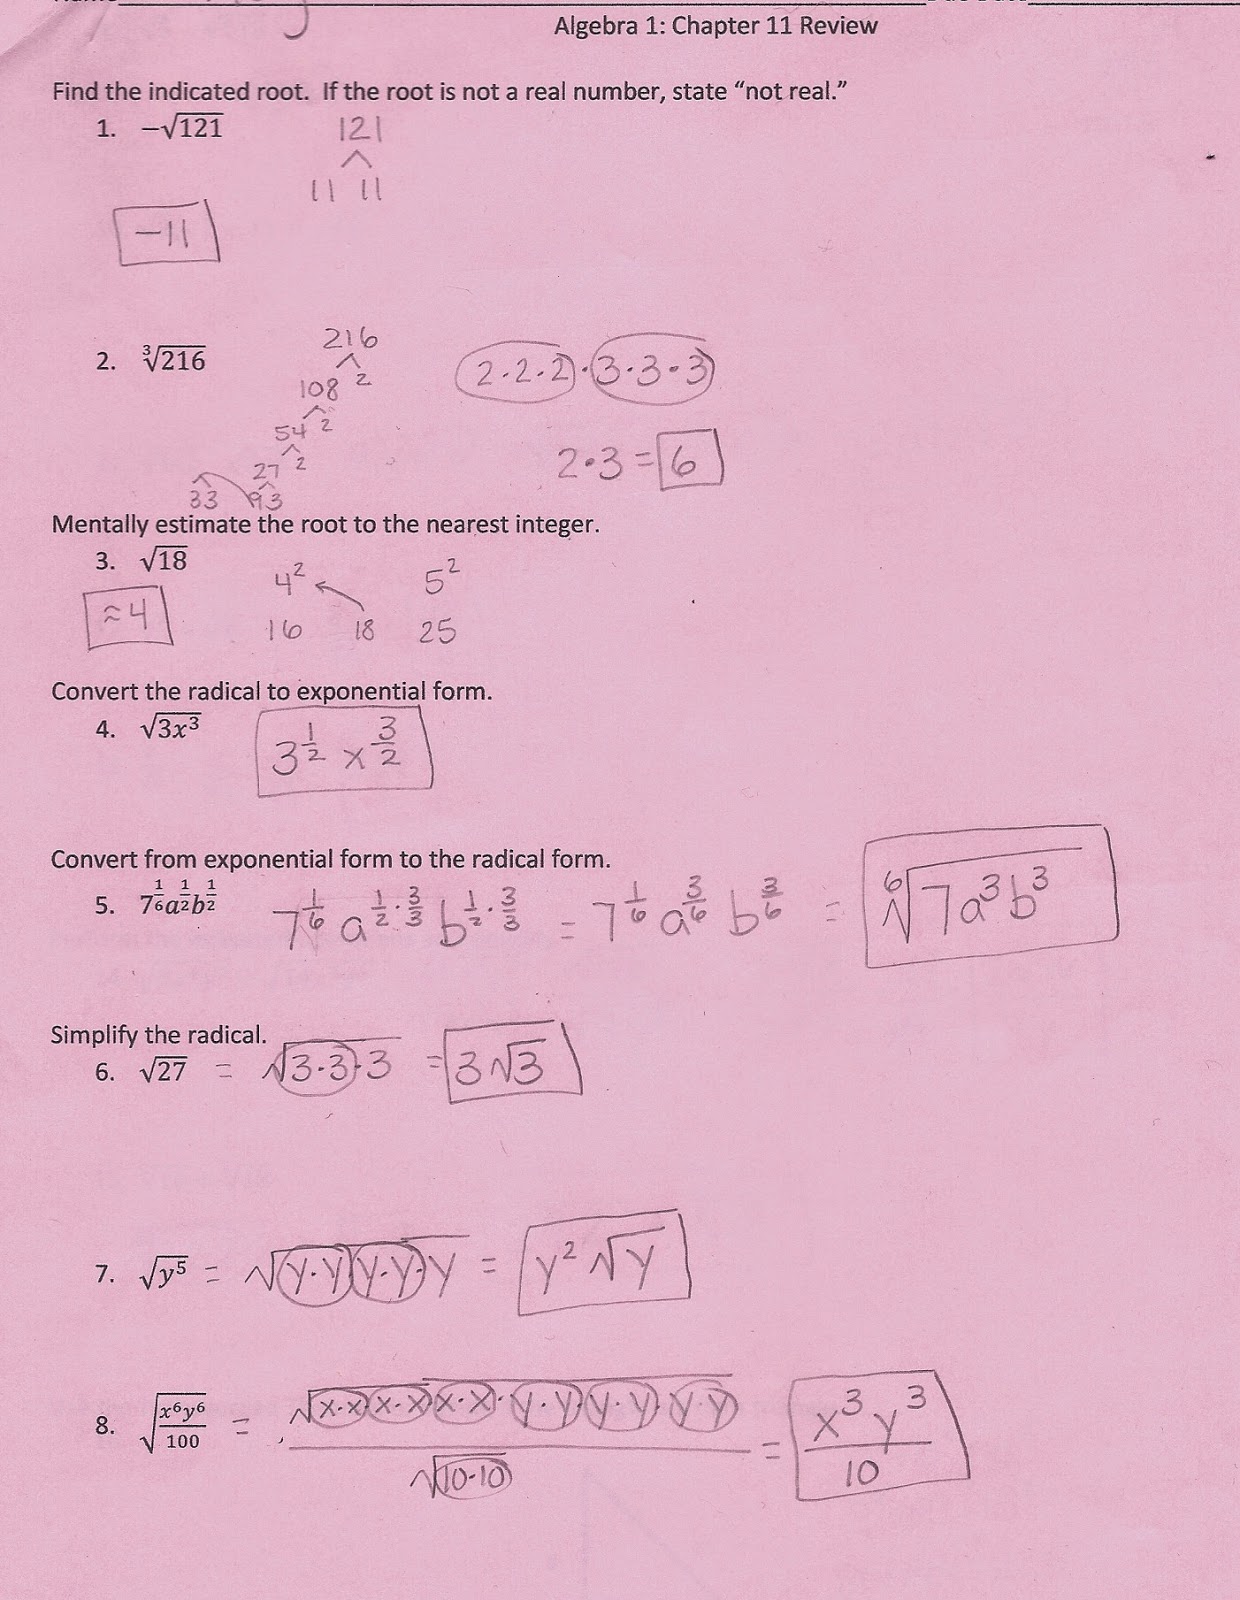 Algebra 1: Chapter 11 Review
Find the indicated root. If the root is not a real number, state “not real.”
1. −√121
121
11 11
−11
2. ∛216
216
108 2
54 2
27 2
33 93
2·2·2·3·3·3
2·3=6
Mentally estimate the root to the nearest integer.
3. √18
4² 5²
≈4
16 18 25
Convert the radical to exponential form.
4. √3x³
3^(1/2) x^(3/2)
Convert from exponential form to the radical form.
5. 7^(1/6)a^(1/2)b^(1/2)
7^(1/6) a^(1/2·3/3) b^(1/2·3/3) = 7^(1/6) a^(3/6) b^(3/6) = ⁶√7a³b³
Simplify the radical.
6. √27 = √3·3·3 = 3√3
7. √y⁵ = √y·y·y·y·y = y²√y
8. √(x⁶y⁶/100) = √x·x·x·x·x·x·y·y·y·y·y·y / √10·10 = x³y³/10